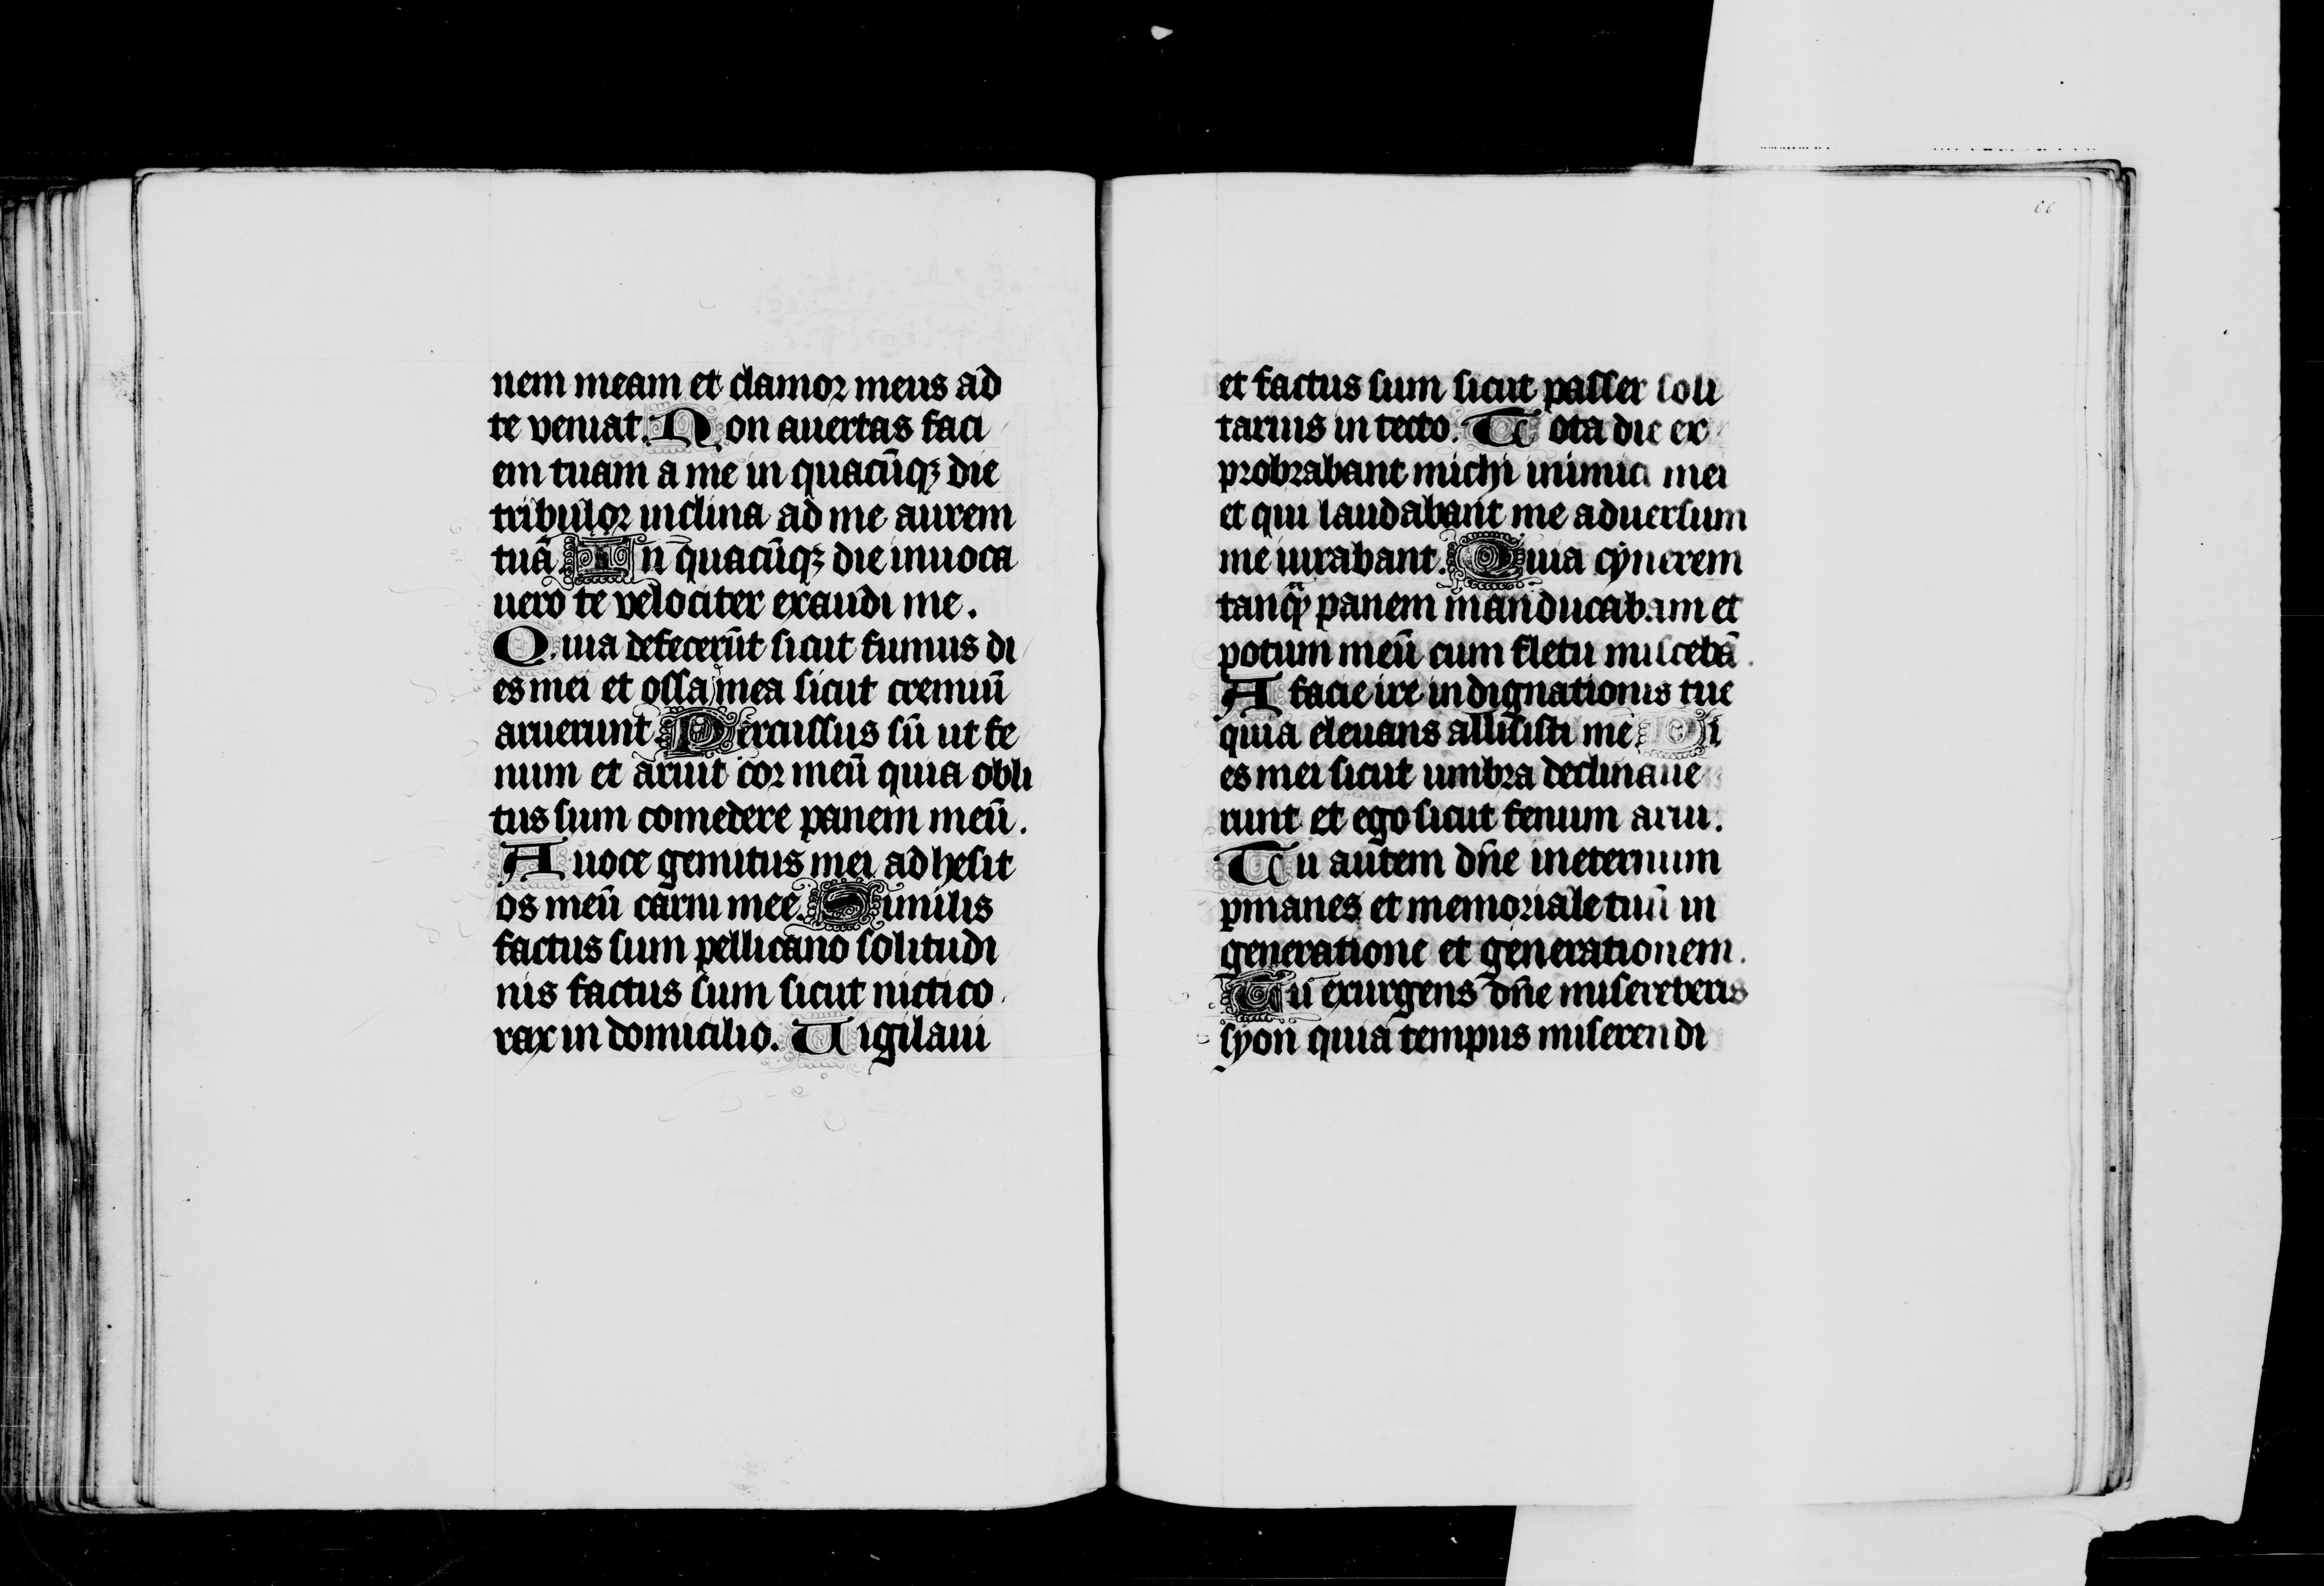 nem meam et clamor meus ad
te veniat. Non auertas faci
em tuam a me in quacūqꝫ die
tribulor inclina ad me aurem
tuā. In quacūqꝫ die inuoca
uero te velociter exaudi me.
Quia defecerūt sicut fumus di
es mei et ossa mea sicut cremiū
aruerunt. Percussus sū ut fe
num et aruit cor meū quia obli
tus sum comedere panem meū.
A uoce gemitus mei adhesit
os meū carni mee. Similis
factus sum pellicano solitudi
nis factus sum sicut nictico
rax in domicilio. Vigilaui
66
et factus sum sicut passer soli
tarius in tecto. Tota die ex
probrabant michi inimici mei
et qui laudabant me aduersum
me iurabant. Quia cynerem
tanqᷓ panem manducabam et
potum meū cum fletu miscebā.
A facie ire indignationis tue
quia eleuans allisisti me. Di
es mei sicut umbra declinaue
runt et ego sicut fenum arui.
Tu autem dñe ineternum
ꝑmanes et memoriale tuū in
generatione et generationem.
Tu exurgens dñe misereberis
syon quia tempus miserendi